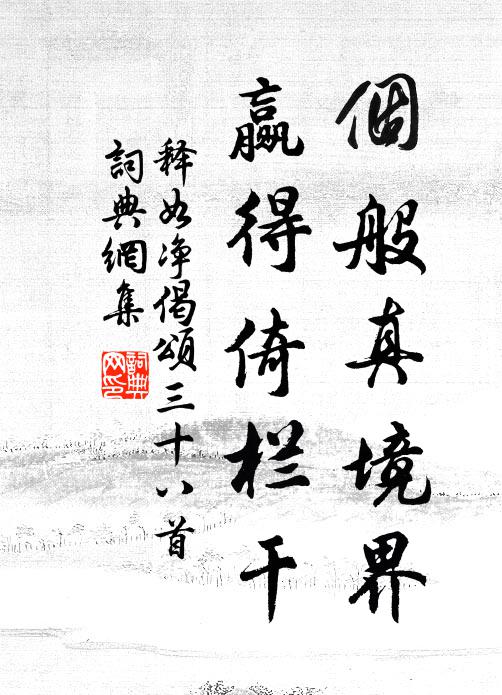 個般真境界
赢得倚栏干
释如净偈頌三十八首
詞典網集
詞典网印